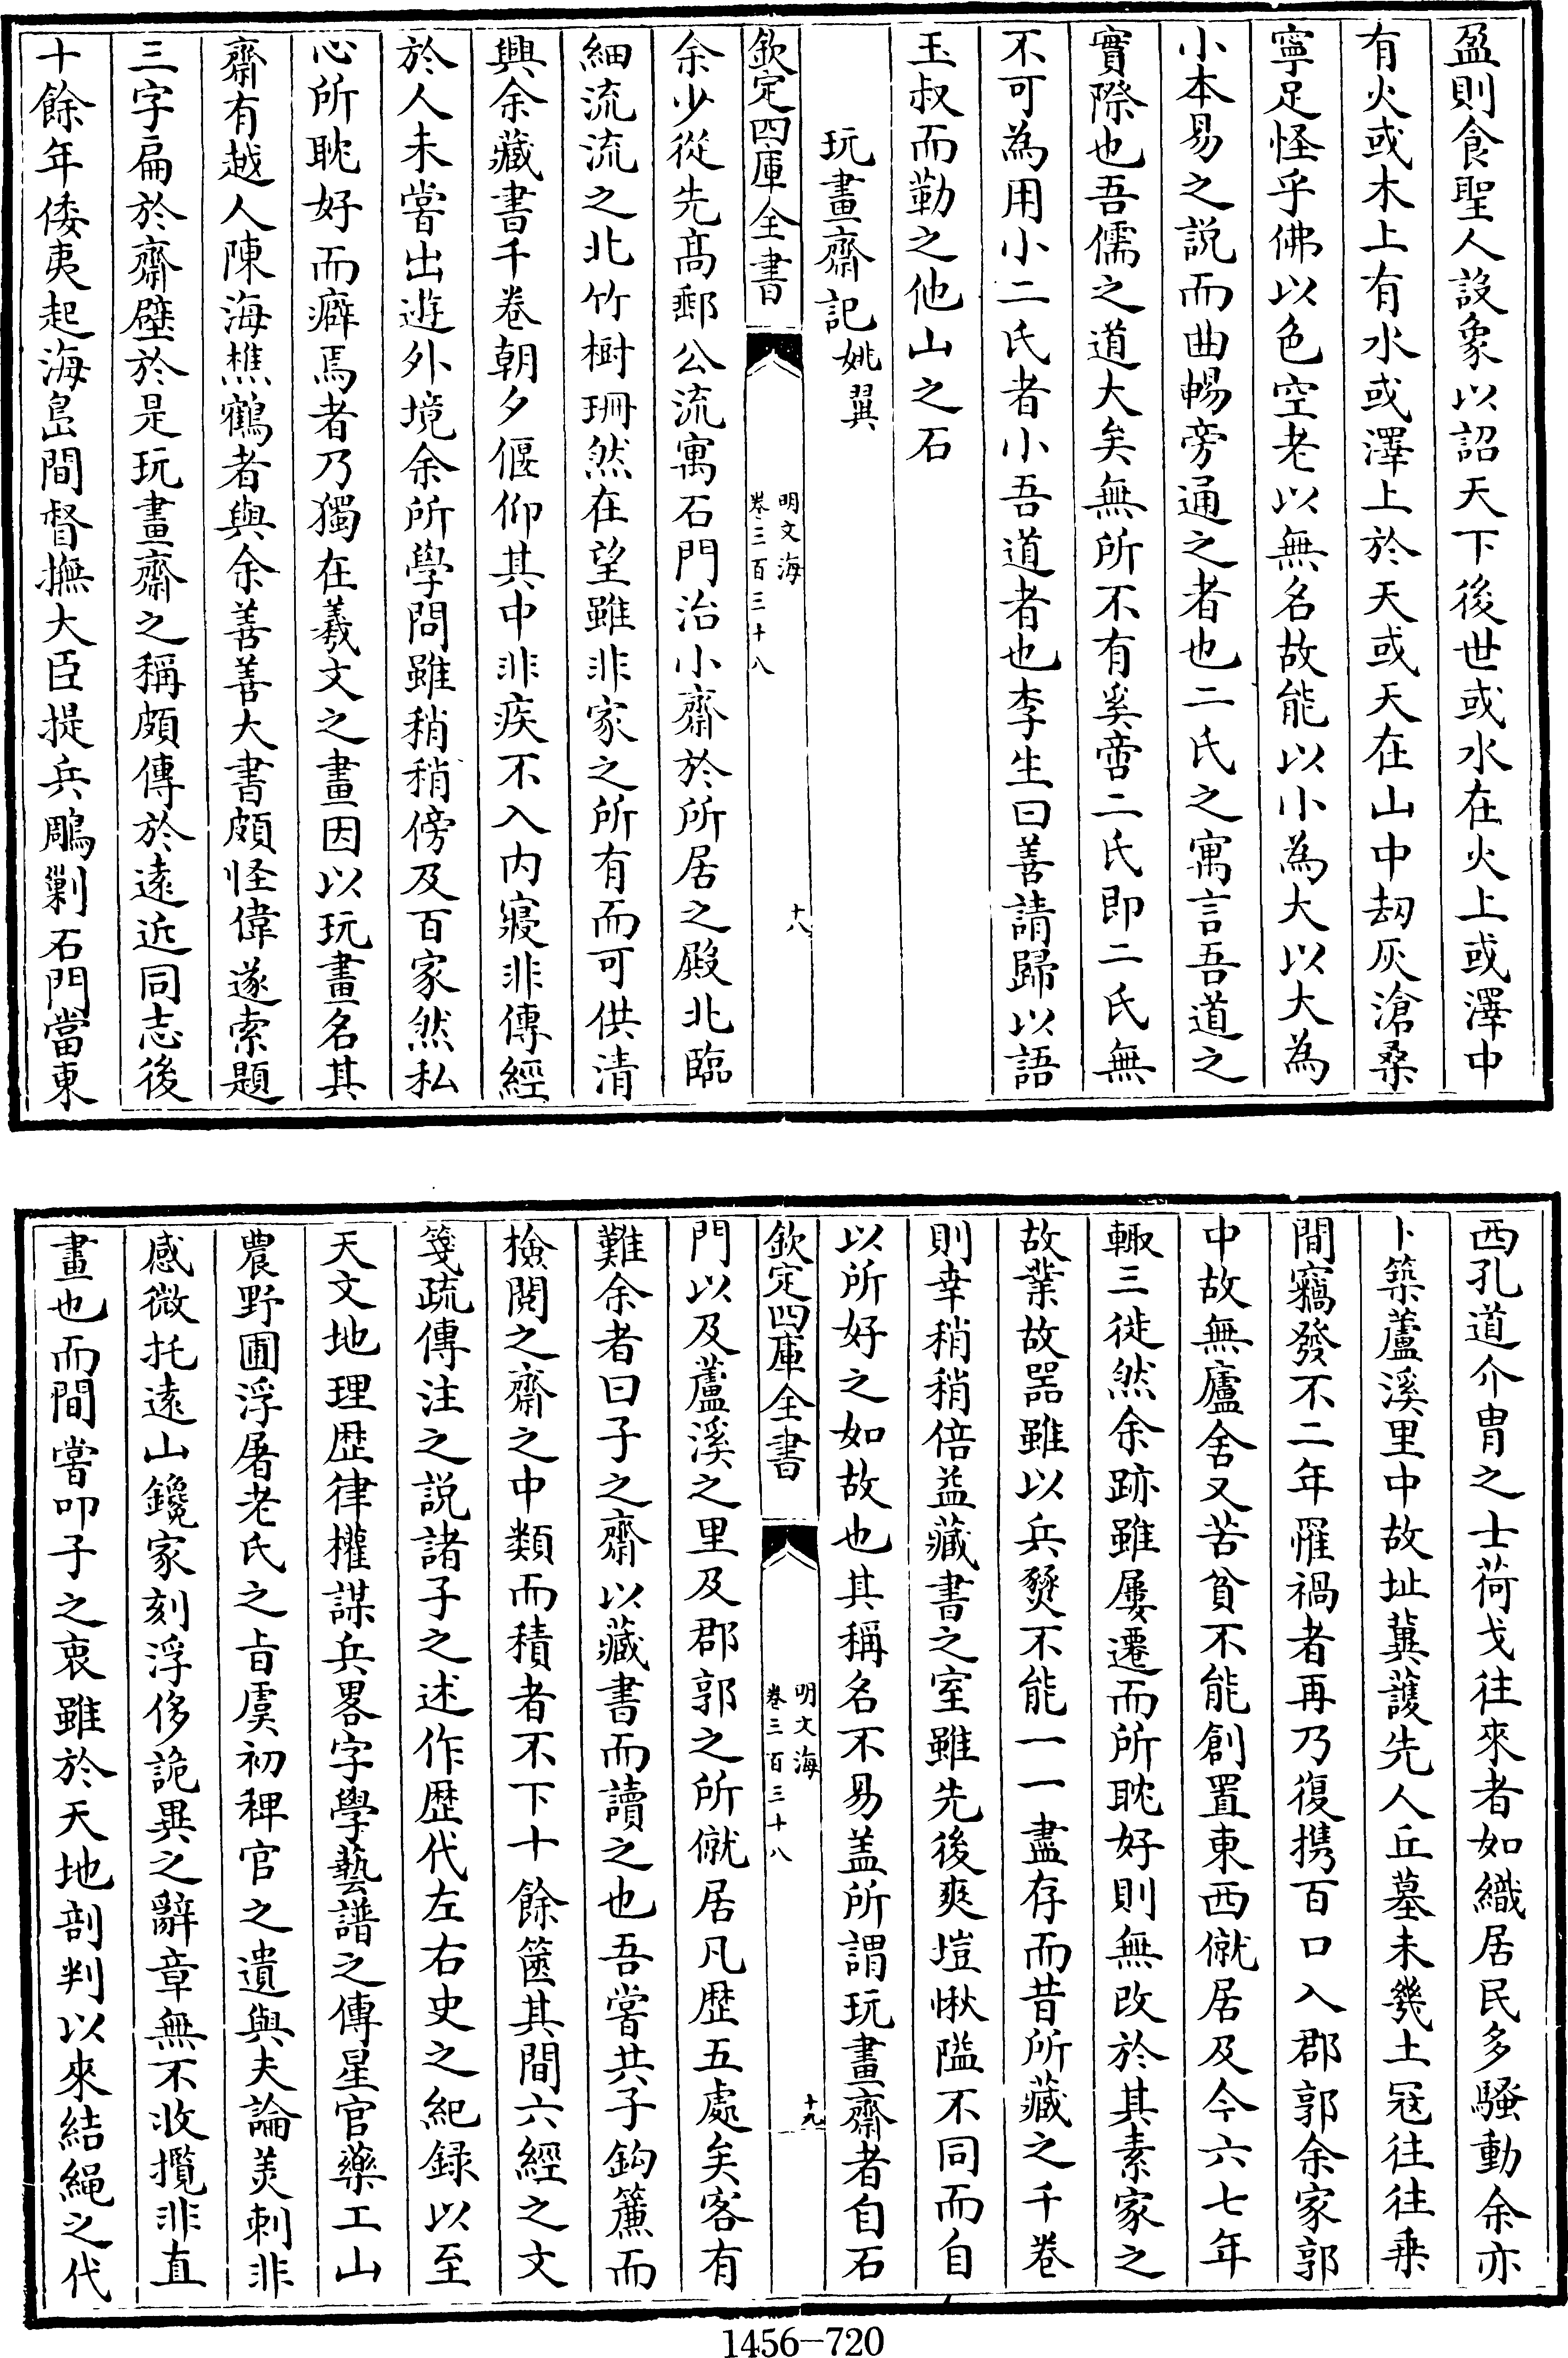 盈則食聖人設象以詔天下後世或水在火上或澤中
有火或木上有水或澤上於天或天在山中刼灰滄桑
寧足怪乎佛以色空老以無名故能以小為大以大為
小本易之説而曲暢旁通之者也二氏之寓言吾道之
實際也吾儒之道大矣無所不有奚啻二氏即二氏無
不可為用小二氏者小吾道者也李生曰善請歸以語
玉叔而勒之他山之石
玩畫齋記姚翼
欽定四庫全書
明文海
卷三百三十八
十八
余少從先髙郵公流寓石門治小齋於所居之殿北臨
細流流之北竹樹珊然在望雖非家之所有而可供清
興余藏書千卷朝夕偃仰其中非疾不入内寢非傳經
於人未嘗出遊外境余所學問雖稍稍傍及百家然私
心所耽好而癖焉者乃獨在羲文之畫因以玩畫名其
齋有越人陳海樵鶴者與余善善大書頗怪偉遂索題
三字扁於齋壁於是玩畫齋之稱頗傳於遠近同志後
十餘年倭夷起海島間督撫大臣提兵鵰剿石門當東
西孔道介胄之士荷戈往來者如織居民多騷動余亦
卜築蘆溪里中故址冀䕶先人丘墓未幾土冦往往乗
間竊發不二年罹禍者再乃復携百口入郡郭余家郭
中故無廬舍又苦貧不能創置東西僦居及今六七年
輙三徙然余跡雖屢遷而所耽好則無改於其素家之
故業故噐雖以兵燹不能一一盡存而昔所藏之千卷
則幸稍稍倍益藏書之室雖先後爽塏愀隘不同而自
以所好之如故也其稱名不易盖所謂玩畫齋者自石
欽定四庫全書
明文海
卷三百三十八
十九
門以及蘆溪之里及郡郭之所僦居凡歴五處矣客有
難余者曰子之齋以藏書而讀之也吾嘗共子鈎簾而
檢閱之齋之中類而積者不下十餘篋其間六經之文
箋疏傳注之説諸子之述作歴代左右史之紀録以至
天文地理歴律權謀兵畧字學藝譜之傳星官藥工山
農野圃浮屠老氏之㫖虞初稗官之遺與夫論美刺非
感微托遠山鑱家刻浮侈詭異之辭章無不收攬非直
畫也而間嘗叩子之衷雖於天地剖判以來結繩之代
1456-720